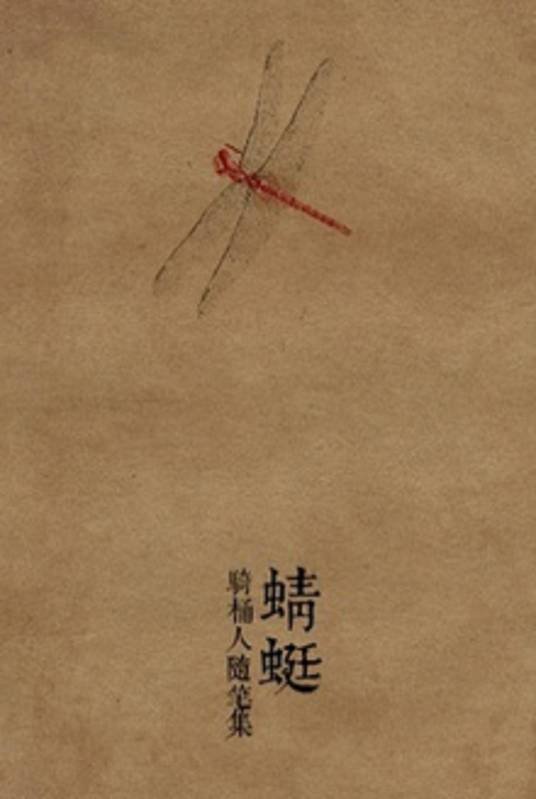 蜻蜓
騎桶人隨笔集